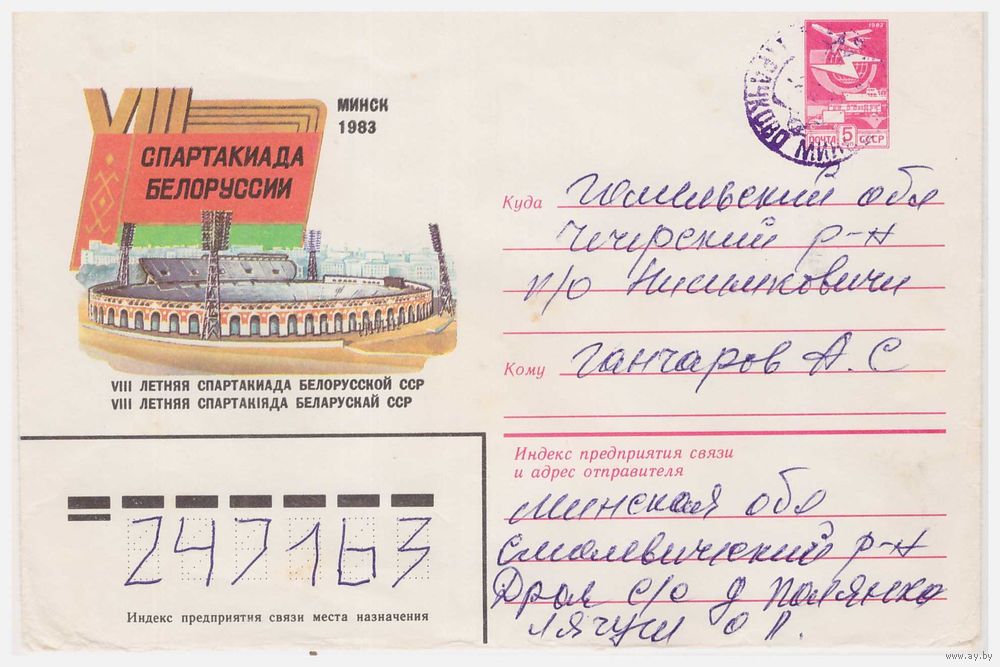 VIII
СПАРТАКИАДА
БЕЛОРУССИИ
МИНСК
1983
VIII ЛЕТНЯЯ СПАРТАКИАДА БЕЛОРУССКОЙ ССР
VIII ЛЕТНЯЯ СПАРТАКІЯДА БЕЛАРУСКАЙ ССР
1982
ПОЧТА 5 СССР
Куда Гомельский обл
Чечерский р-н
п/о Нисимковичи
Кому Ганчаров А. С
Индекс предприятия связи
и адрес отправителя
Минская обл
Смолевический р-н
с/о д Полянка
Лягуш О П.
247163
Индекс предприятия связи места назначения
www.ay.by